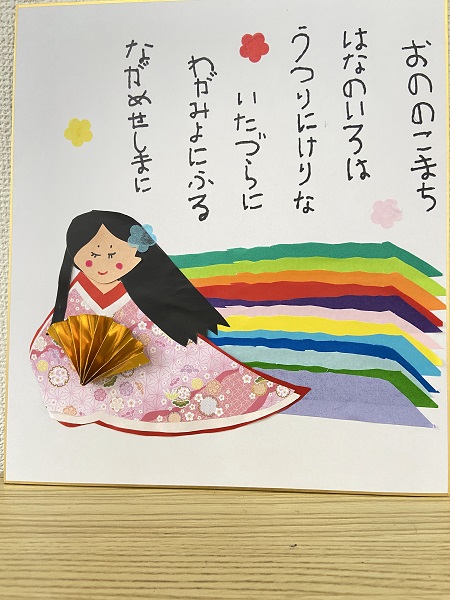 おののこまち
はなのいろは
うつりにけりな
いたづらに
わがみよにふる
ながめせしまに